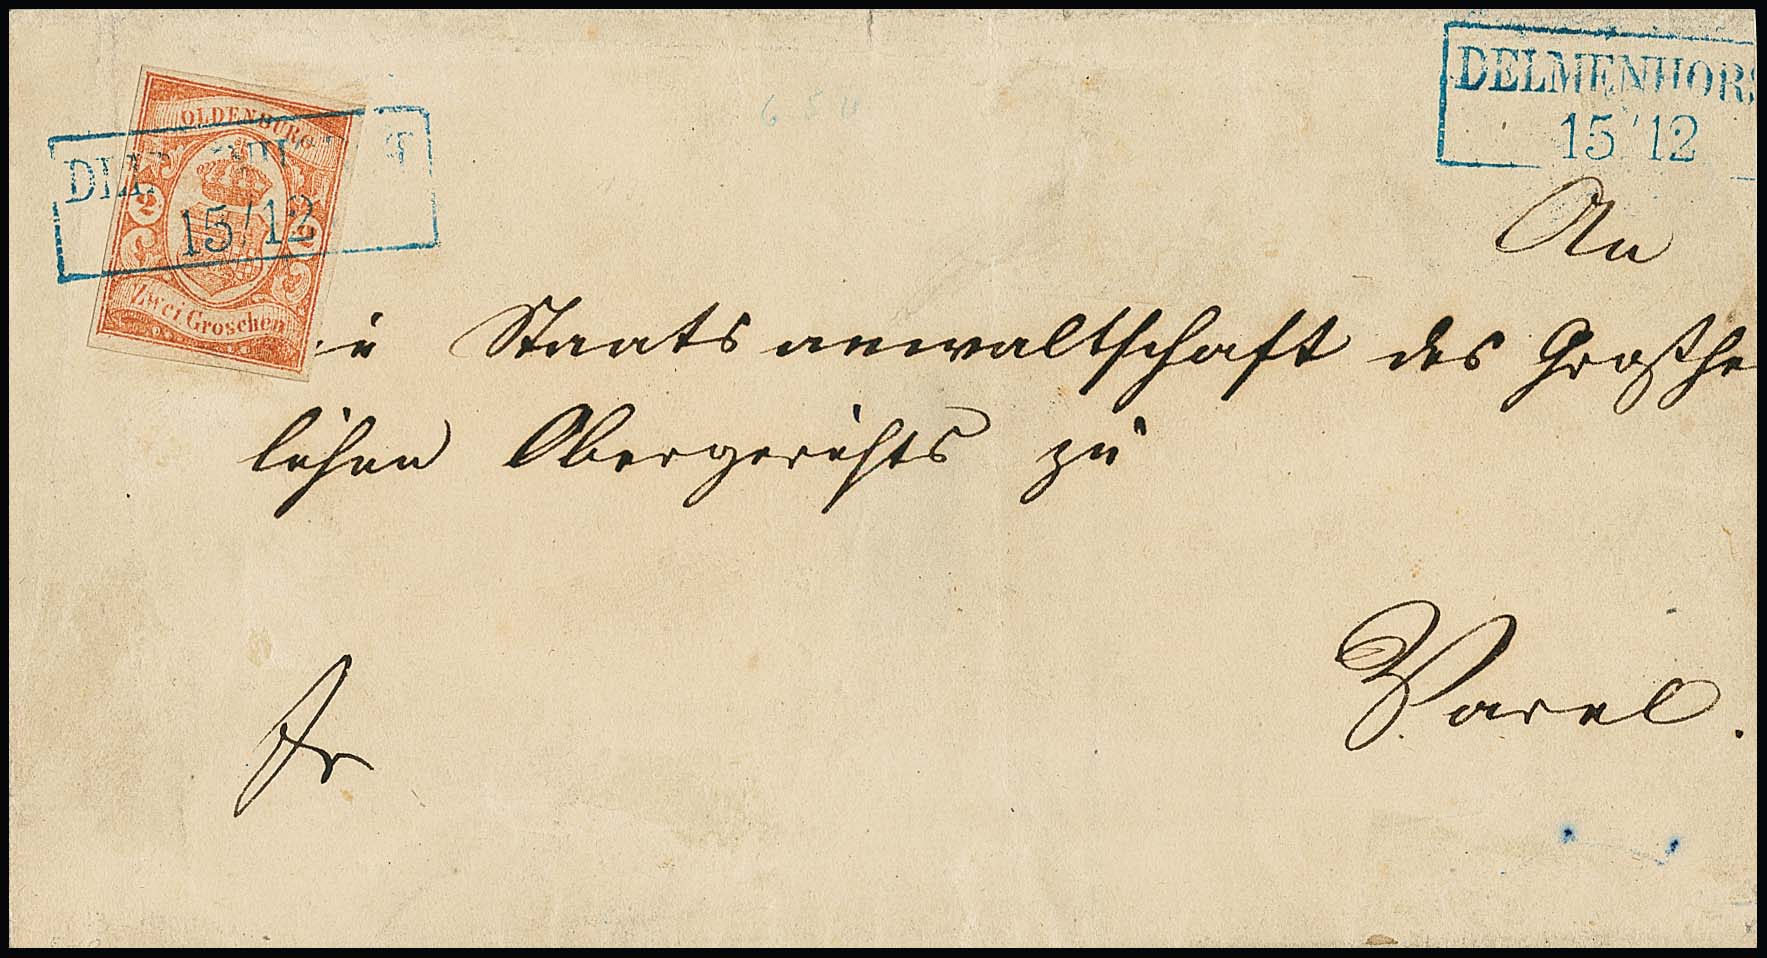 OLDENBURG
2 2
Zwei Groschen
15/12
DELMENHORS
15/12
An
ie Staatsanwaltschaft des Großhe
lichen Obergerichts zu
Varel.
fr